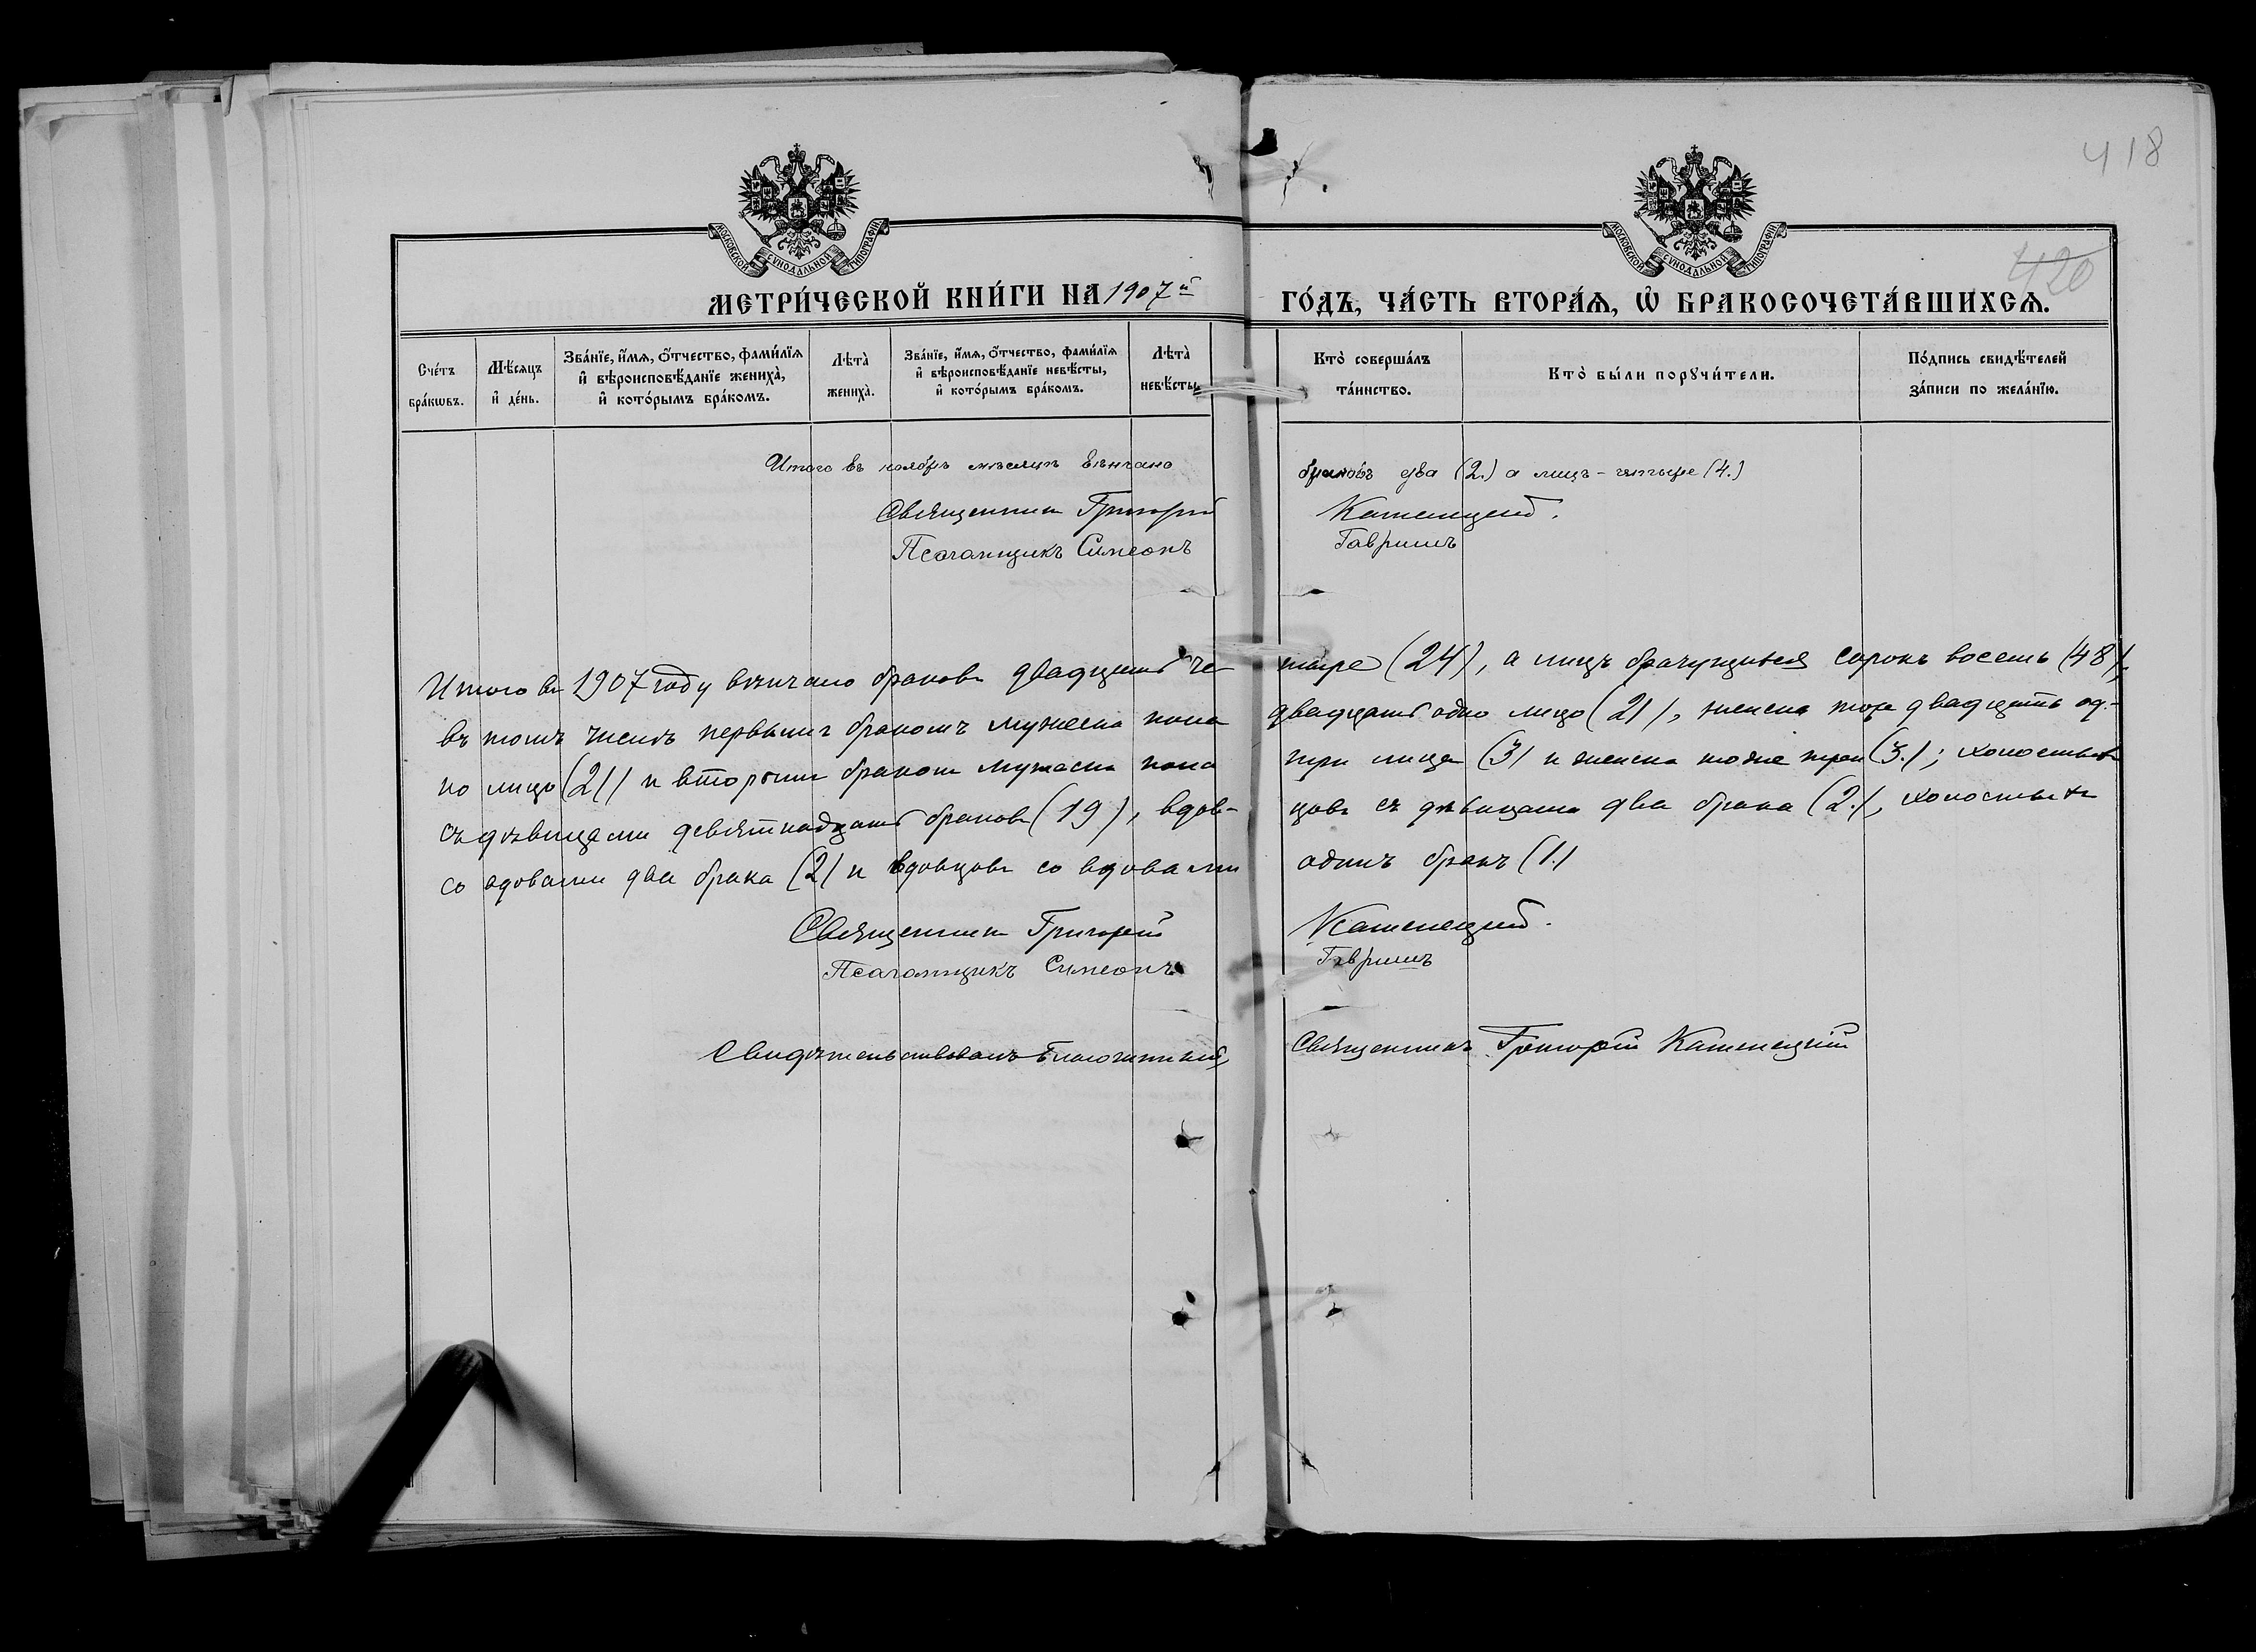 418
420
МОСКОВСКОЙ СѴНОДАЛЬНОЙ ТИПОГРАФІИ.
МОСКОВСКОЙ СѴНОДАЛЬНОЙ ТИПОГРАФІИ.
МЕТРИ́ЧЕСКОЙ КНИ́ГИ НА 1907й ГО́ДЪ, ЧА́СТЬ ВТОРА́Ѧ, Ѡ҆ БРАКОСОЧЕТА́ВШИХСѦ.
Сче́тъ бра́кѡвъ.
Мѣ́сяцъ и҆ де́нь.
Зва́нїе, и҆́мѧ, ѻ҆́тчество, фами́лїѧ и҆ вѣроисповѣ́данїе жениха̀, и҆ кото́рымъ бра́комъ.
Лѣта̀ жениха̀.
Зва́нїе, и҆́мѧ, ѻ҆́тчество, фами́лїѧ и҆ вѣроисповѣ́данїе невѣ́сты, и҆ кото́рымъ бра́комъ.
Лѣта̀ невѣ́сты.
Кто̀ соверша́лъ та́инство.
Кто̀ бы́ли порꙋчи́тели.
По́дпись свидѣ́телей за́писи по жела́нїю.
Итого въ ноябрѣ мѣсяцѣ вѣнчано браковъ два (2.) а лицъ - четыре (4.)
Священникъ Григорій Каменецкій.
Псаломщикъ Симеонъ Гавришъ
Итого въ 1907 году вѣнчано браковъ двадцать четыре (24), а лицъ брачущихся сорокъ восемь (48),
въ томъ числѣ первымъ бракомъ мужеска пола двадцать одно лицо (21), женска тоже двадцать од-
но лицо (21) и вторымъ бракомъ мужеска пола три лица (3) и женска тоже три (3.); холостыхъ
съ дѣвицами девятнадцать браковъ (19), вдов-цовъ съ дѣвицами два брака (2.), холостыхъ
со вдовами два брака (2) и вдовцовъ со вдовами одинъ бракъ (1.)
Священникъ Григорій Каменецкій.
Псаломщикъ Симеонъ Гавришъ
Свидѣтельствовалъ Благочинный, Священникъ Григорій Каменецкій